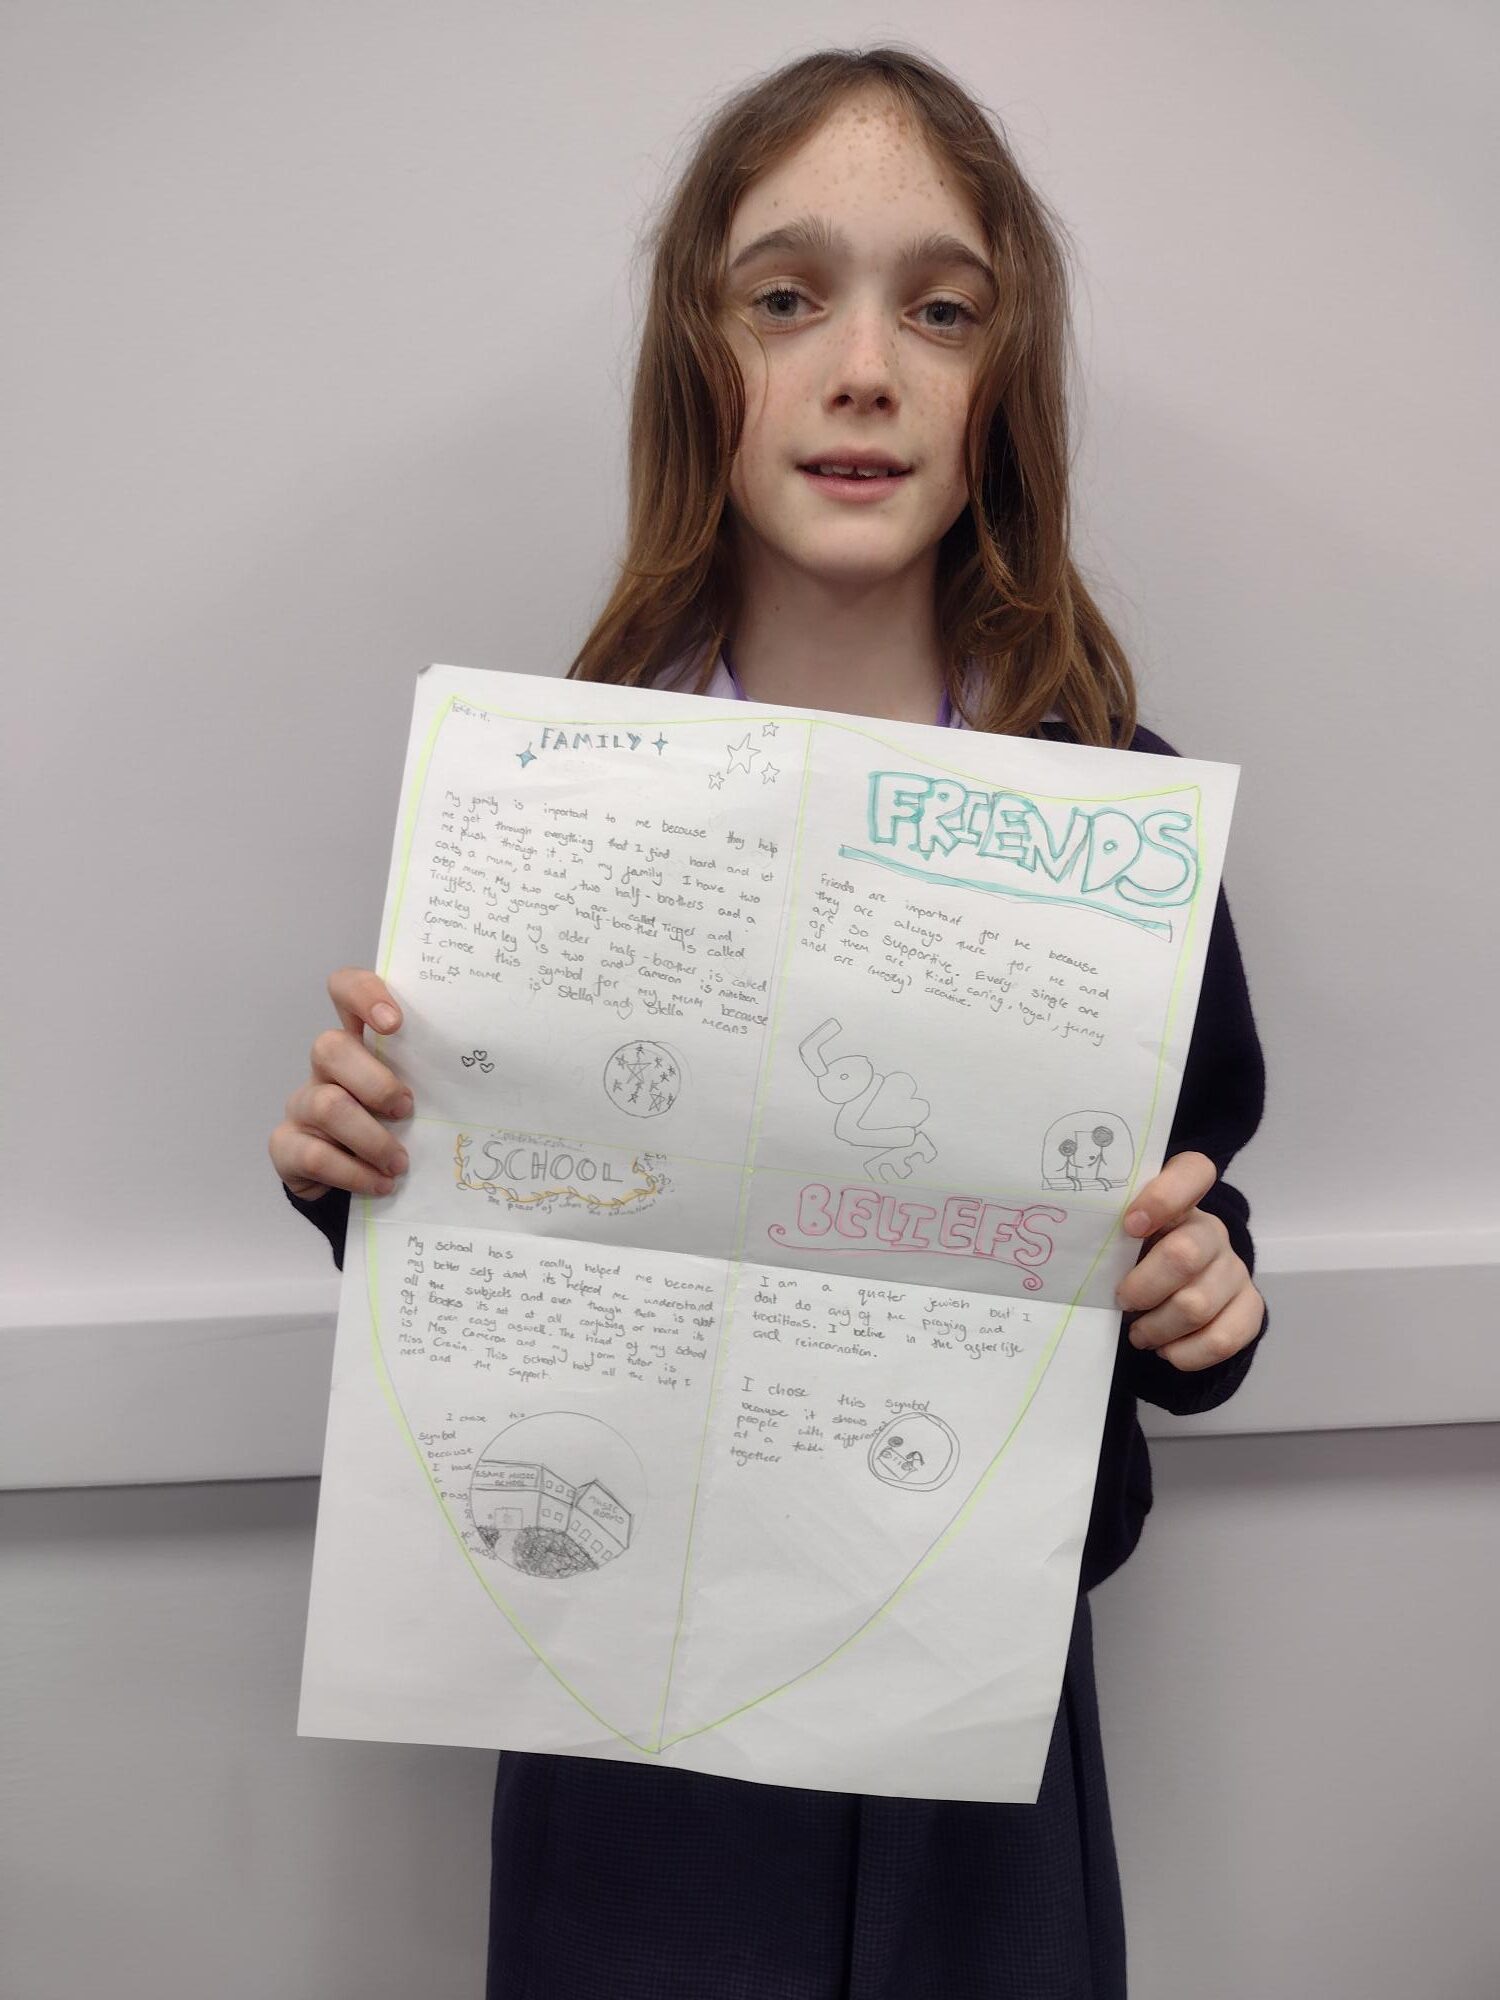 FAMILY
My family is important to me because they help
me get through everything that I find hard and let
me push through it. In my family I have two
cats, a mum, a dad, two half-brothers and a
step mum. My two cats are called Tigger and
Truffles. My younger half-brother is called
Huxley and my older half-brother is called
Cameron. Huxley is two and Cameron is nineteen
I chose this symbol for my mum because
her name is Stella and Stella means
star.
FRIENDS
Friends are important for me because
they are always there for me and
are so supportive. Every single one
of them are kind, caring, loyal, funny
and are (mostly) creative.
LOVE
SCHOOL
the place of
My school has really helped me become
my better self and its helped me understand
all the subjects and even though there is alot
of books its not at all confusing or hard its
not even easy aswell. The head of my school
is Mrs Cameron and my form tutor is
Miss Cronin. This School has all the help I
need and the support.
I chose this
symbol
because
I have
a
pass
for
music
MUSIC
SCHOOL
MUSIC
ROOMS
BELIEFS
I am a quater jewish but I
dont do any of the praying and
traditions. I belive in the afterlife
and reincarnation.
I chose this symbol
because it shows
people with differences
at a table
together